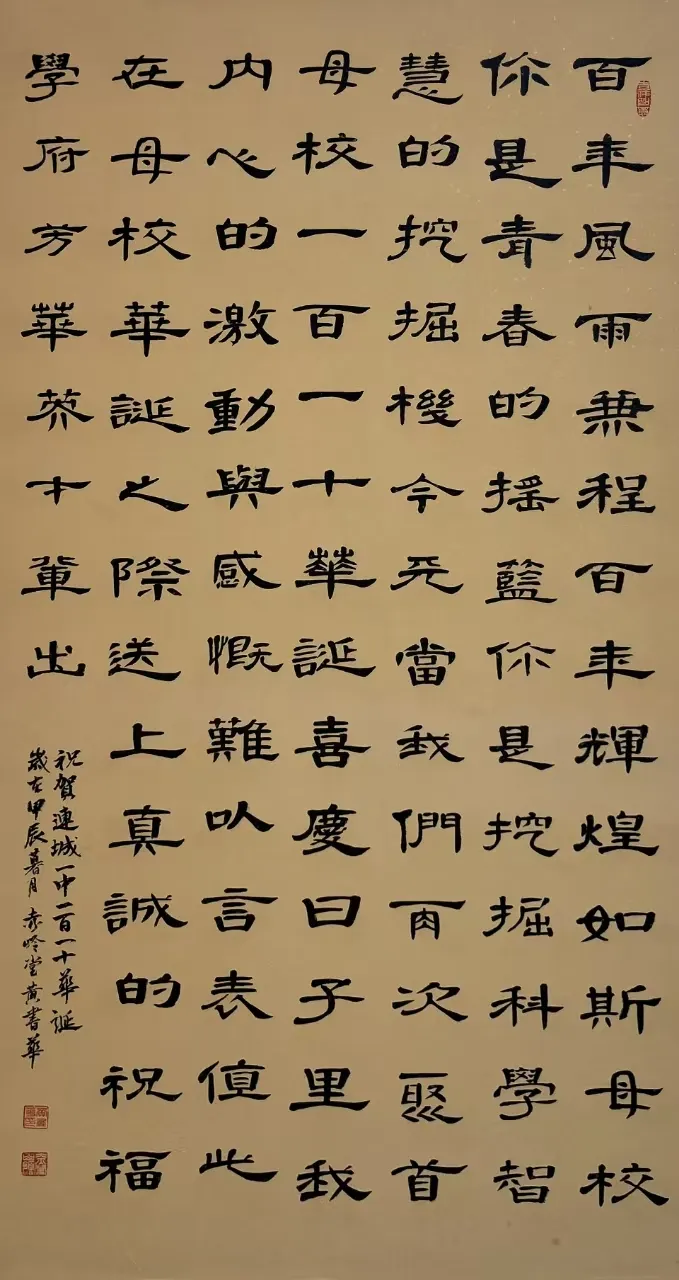 百年風雨兼程百年輝煌如斯母校
你是青春的搖籃你是挖掘科學智
慧的挖掘機今天當我們再次聚首
母校一百一十華誕喜慶日子里我
内心的激動與感慨難以言表值此
在母校華誕之際送上真誠的祝福
學府芳華英才輩出
祝賀連城一中一百一十華誕
歲在甲辰暮月赤岭堂黄書華